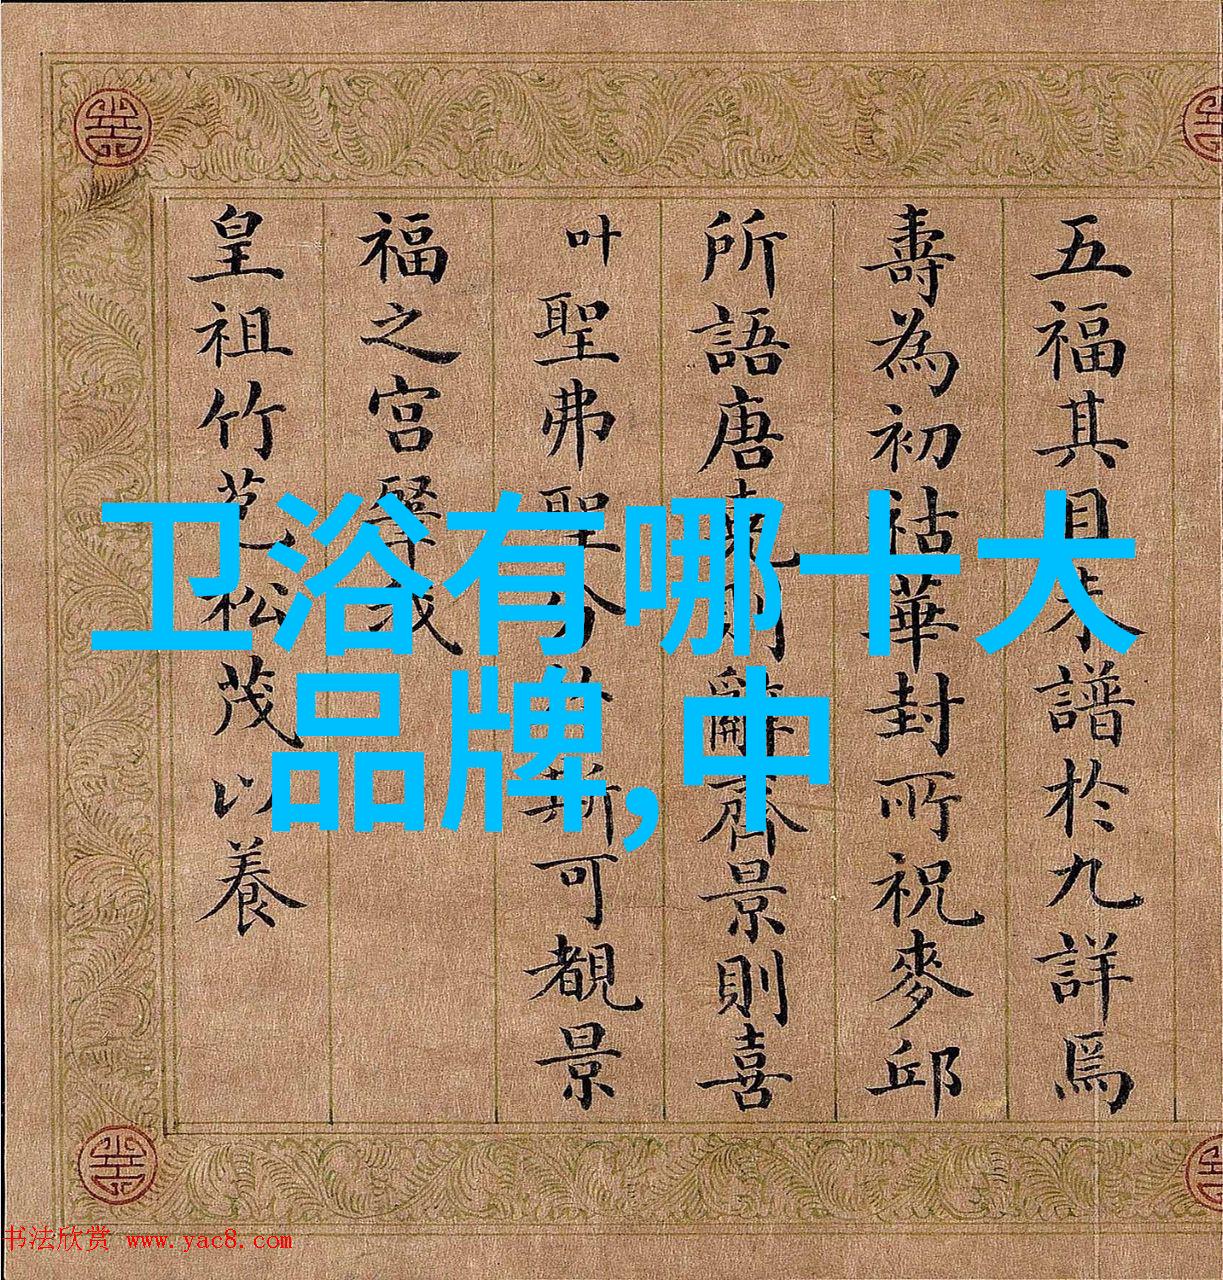 五福其目未譜於九詳焉
壽為初祜華封所祝麥邱
所語唐堯則辭齊景則喜
叶聖弗聖今於斯可覩景
福之宮肇我
皇祖竹苞松茂以養
卫浴有哪十大
品牌,中
书法欣赏 www.yac8.com